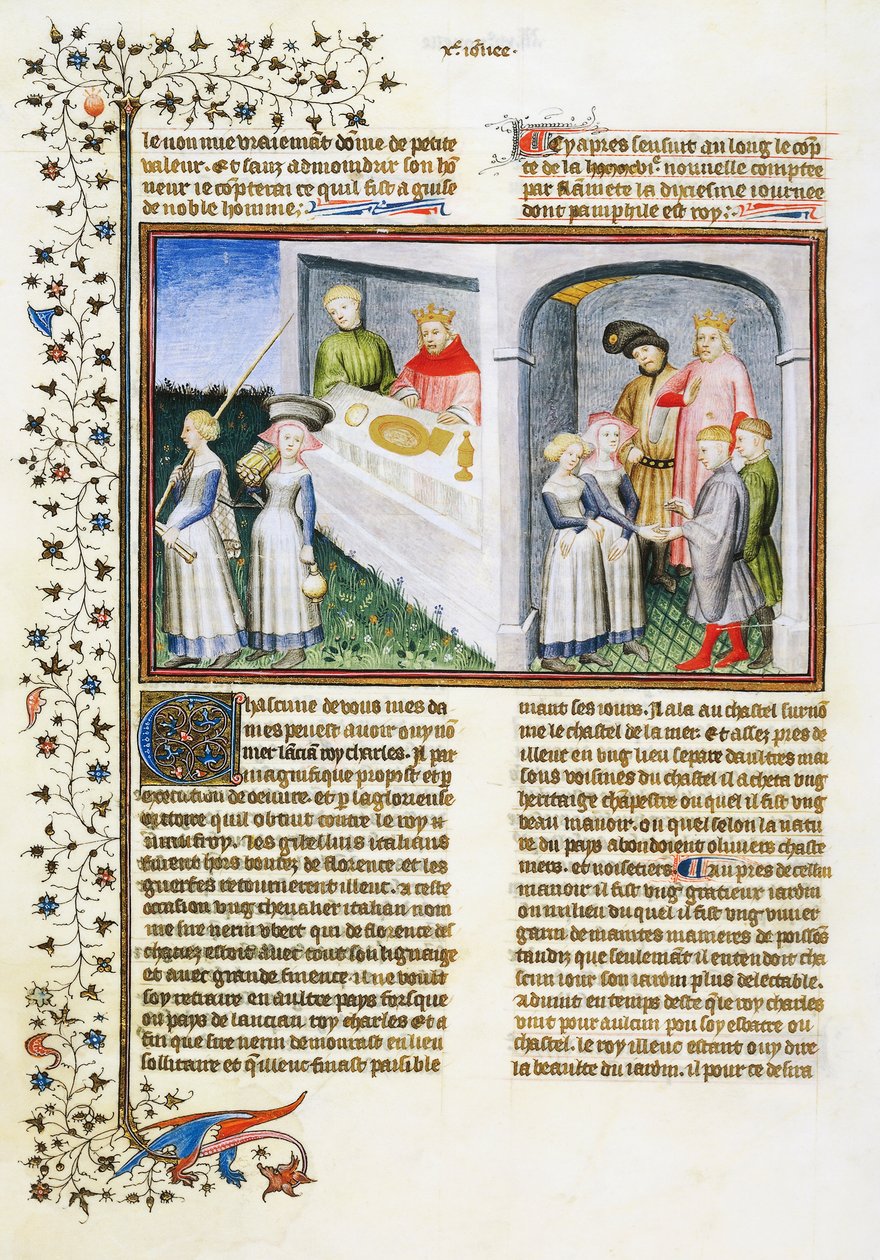 xᵉ. iõnee.
le non mie vraiemãt dõme de petite
valeur. Et sanz admoindrir son hõ
neur ie cõpterai ce quil fist a guise
de noble homme;
Cy apres sensuit au long le cõp
te de la nouuelle comptee
par la dixiesme iournee
dont pamphile est roy;
Chascune de vous mes da
mes peuest auoir ouy nõ
mer lãciã roy charles. Il par
magnifique propost et p̃
execution de oeuure. et p̃ la glorieuse
victoire quil obtint contre le roy
mainfroy. les gibellins italians
furent hors boutez de florence. et les
guerfes retournerent illeuc. a ceste
occasion vng cheualier italian nom
me sire nerin vbert qui de florence des
chaciez estoit auec tout son lignaige
et auec grande finence. il ne voult
soy retraire en aultre pays forsque
ou pays de lancian roy charles Et a
fin que sire nerin demourast en lieu
sollitaire et q̃ illeuc finast paisible
mant ses iours. Il ala au chastel surnõ
me le chastel de la mer. Et assez pres de
illeuc en vng lieu separe daultres mai
sons voisines du chastel il acheta vng
heritaige chãpestre ou quel il fist vng
beau manoir. ou quel selon la natu
re du pays abondoient oliuiers chaste
niers. et noisetiers. Au pres de cellui
manoir il fist vng gratieux iardin
ou milieu du quel il fist vng viuier
garni de maintes manieres de poissõs
tandiz que seulemẽt il entendoit cha
scun iour son iardin plus delectable.
Aduint en temps deste q̃ le roy charles
vint pour aulcun pou soy esbatre ou
chastel. le roy illeuc estant ouy dire
la beaulte du iardin. il pour ce desira